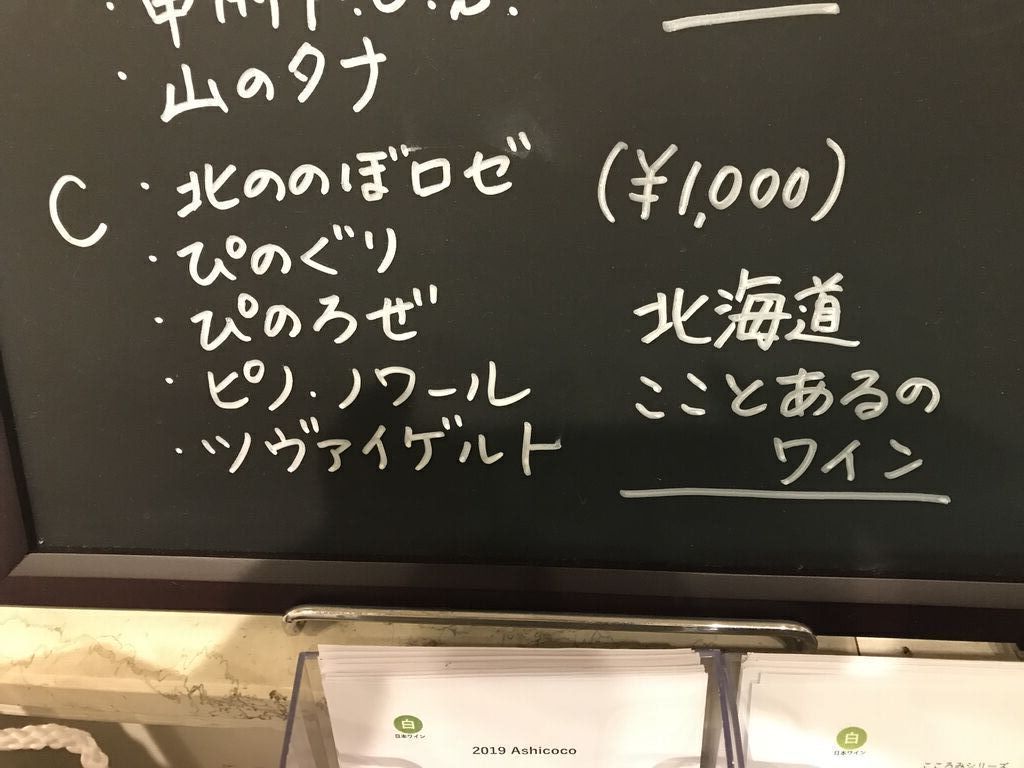 ・山のタナ
C ・北ののぼロゼ (¥1,000)
・ぴのぐり
・ぴのろぜ
・ピノ・ノワール
・ツヴァイゲルト
北海道
こことあるの
ワイン
白
日本ワイン
2019 Ashicoco
白
日本ワイン
こころみシリーズ